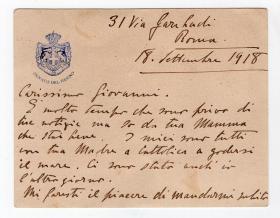 31 Via Garibaldi
Roma
18. Settembre 1918
SENATO DEL REGNO
Carissimo Giovanni.
È molto tempo che sono privo di
tue notizie ma so da tua Mamma
che stai bene. I miei sono tutti
con tua Madre a Cattolica a godersi
il mare. Ci sono stato anch'io
l'altro giorno.
Mi faresti il piacere di mandarmi subito